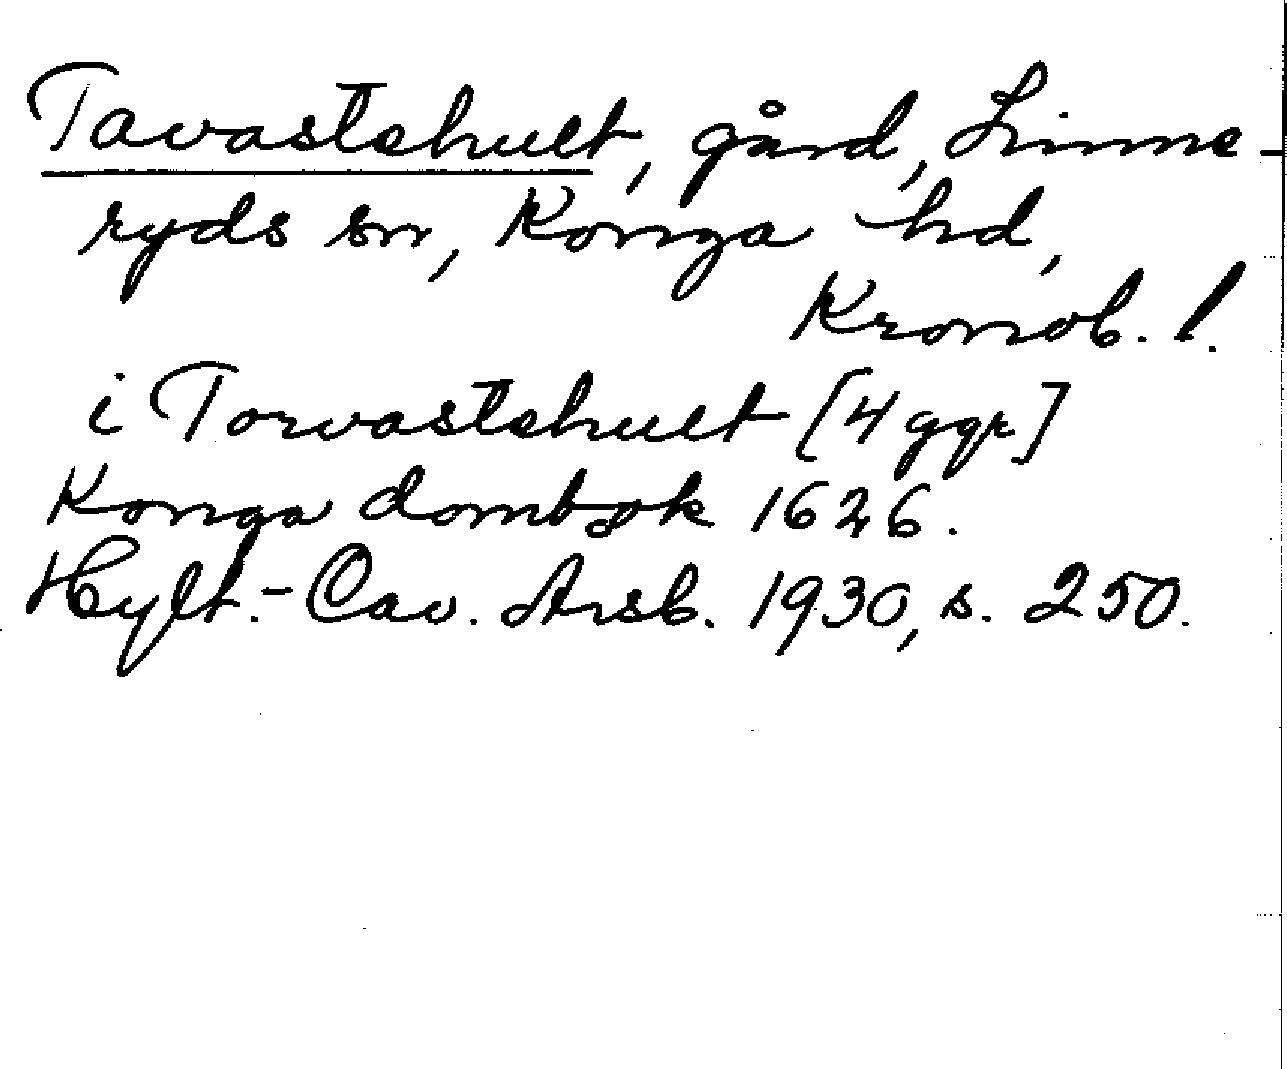 Tavastehult, gård, Linne-
ryds sn, Konga hd,
Kronob. l.
i Torvastehult [4 ggr]
Konga dombok 1626.
Hylt.-Cav. Årsb. 1930, s. 250.